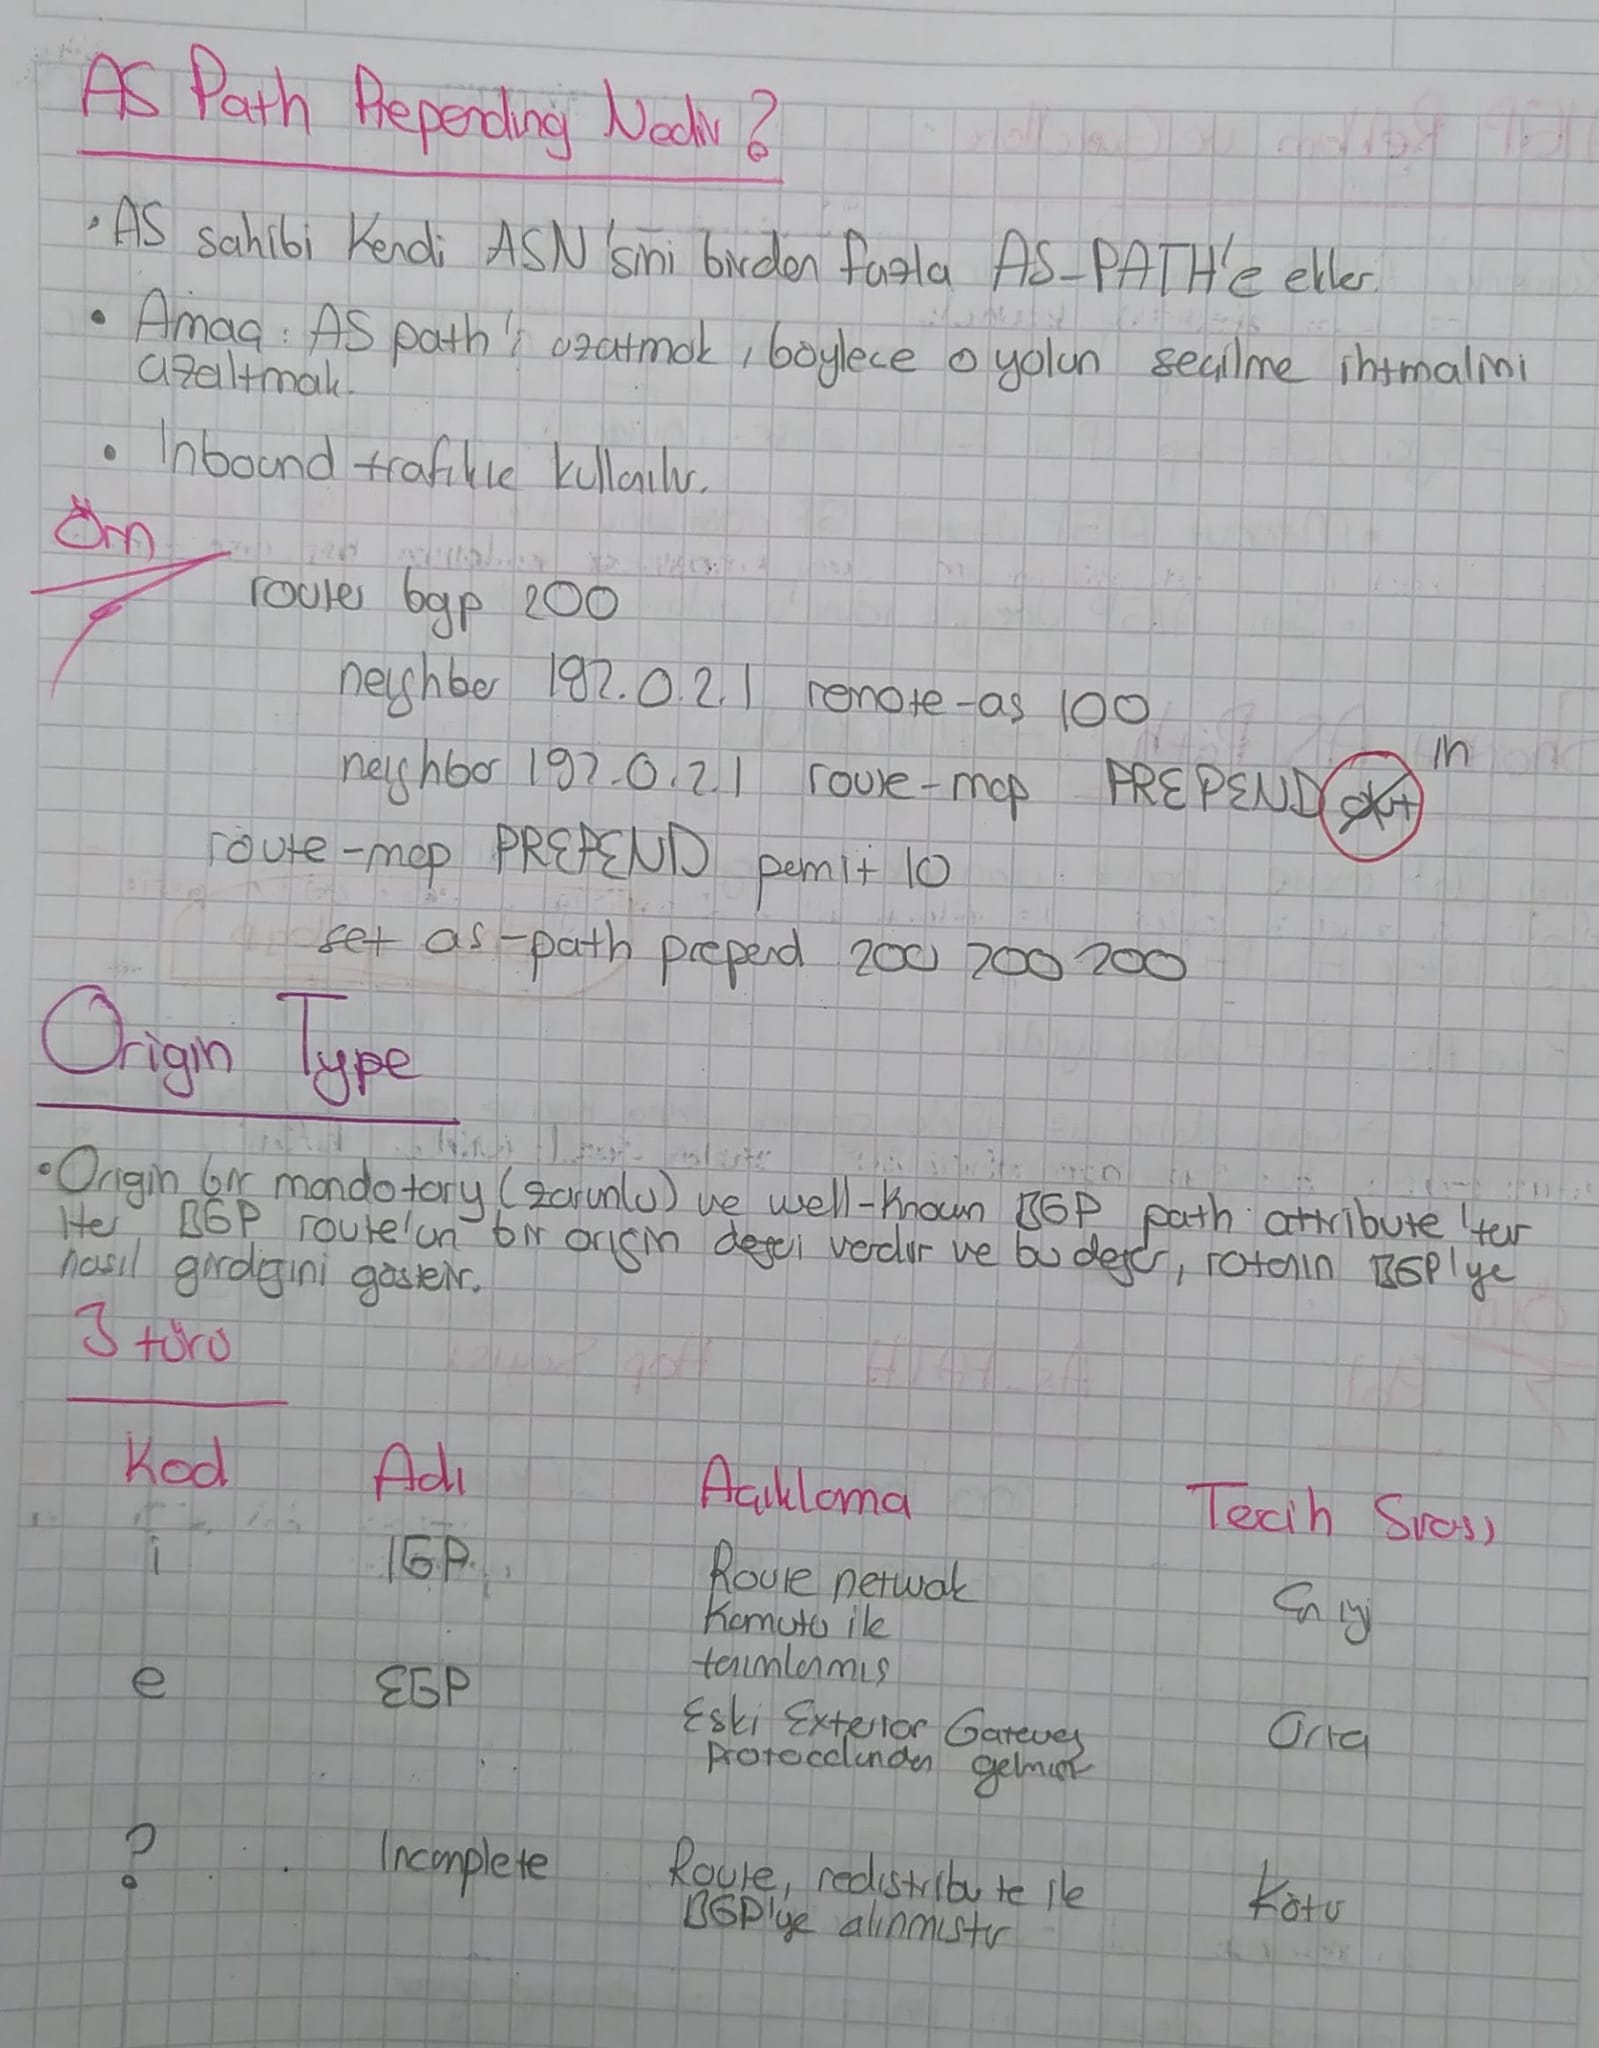 AS Path Prepending Nedir?
• AS sahibi Kendi ASN'sini birden fazla AS-PATH'e ekler.
• Amaç: AS path'i uzatmak, böylece o yolun seçilme ihtmalini
azaltmak.
• Inbound trafikte kullanılır.
Örn
router bgp 200
neighbor 192.0.2.1 remote-as 100
in
neighbor 192.0.2.1 route-map PREPEND out
route-map PREPEND permit 10
set as-path prepend 200 200 200
Origin Type
• Origin bir mandotory (zorunlu) ve well-known BGP path attribute'tur
Her BGP route'un bir origin değeri vardır ve bu değer, rotanın BGP'ye
nasıl girdiğini gösterir.
3 türü
Kod Adı Açıklama Tercih Sırası
i IGP Route network En iyi
Komutu ile
tanımlanmış
e EGP Eski Exterior Gateway Orta
Protocolünden gelmiştir
? Incomplete Route, redistribute ile Kötü
BGP'ye alınmıştır